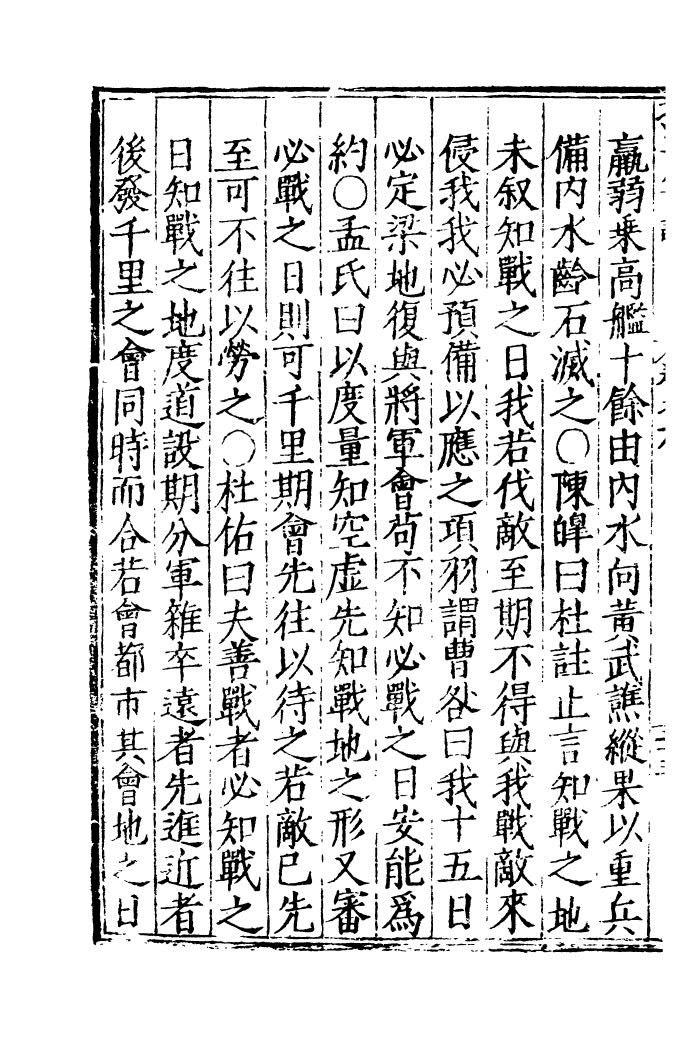 羸弱乗高艦十餘由内水向黄武譙縱果以重兵
備内水齡石滅之○陳皥曰杜註止言知戰之地
未叙知戰之日我若伐敵至期不得與我戰敵來
侵我我必預備以應之項羽謂曹咎曰我十五日
必定梁地復與將軍會茍不知必戰之日安能爲
約○孟氏曰以度量知空虚先知戰地之形又審
必戰之日則可千里期會先往以待之若敵已先
至可不往以勞之○杜佑曰夫善戰者必知戰之
日知戰之地度道設期分軍雜卒遠者先進近者
後發千里之會同時而合若會都市其會地之日